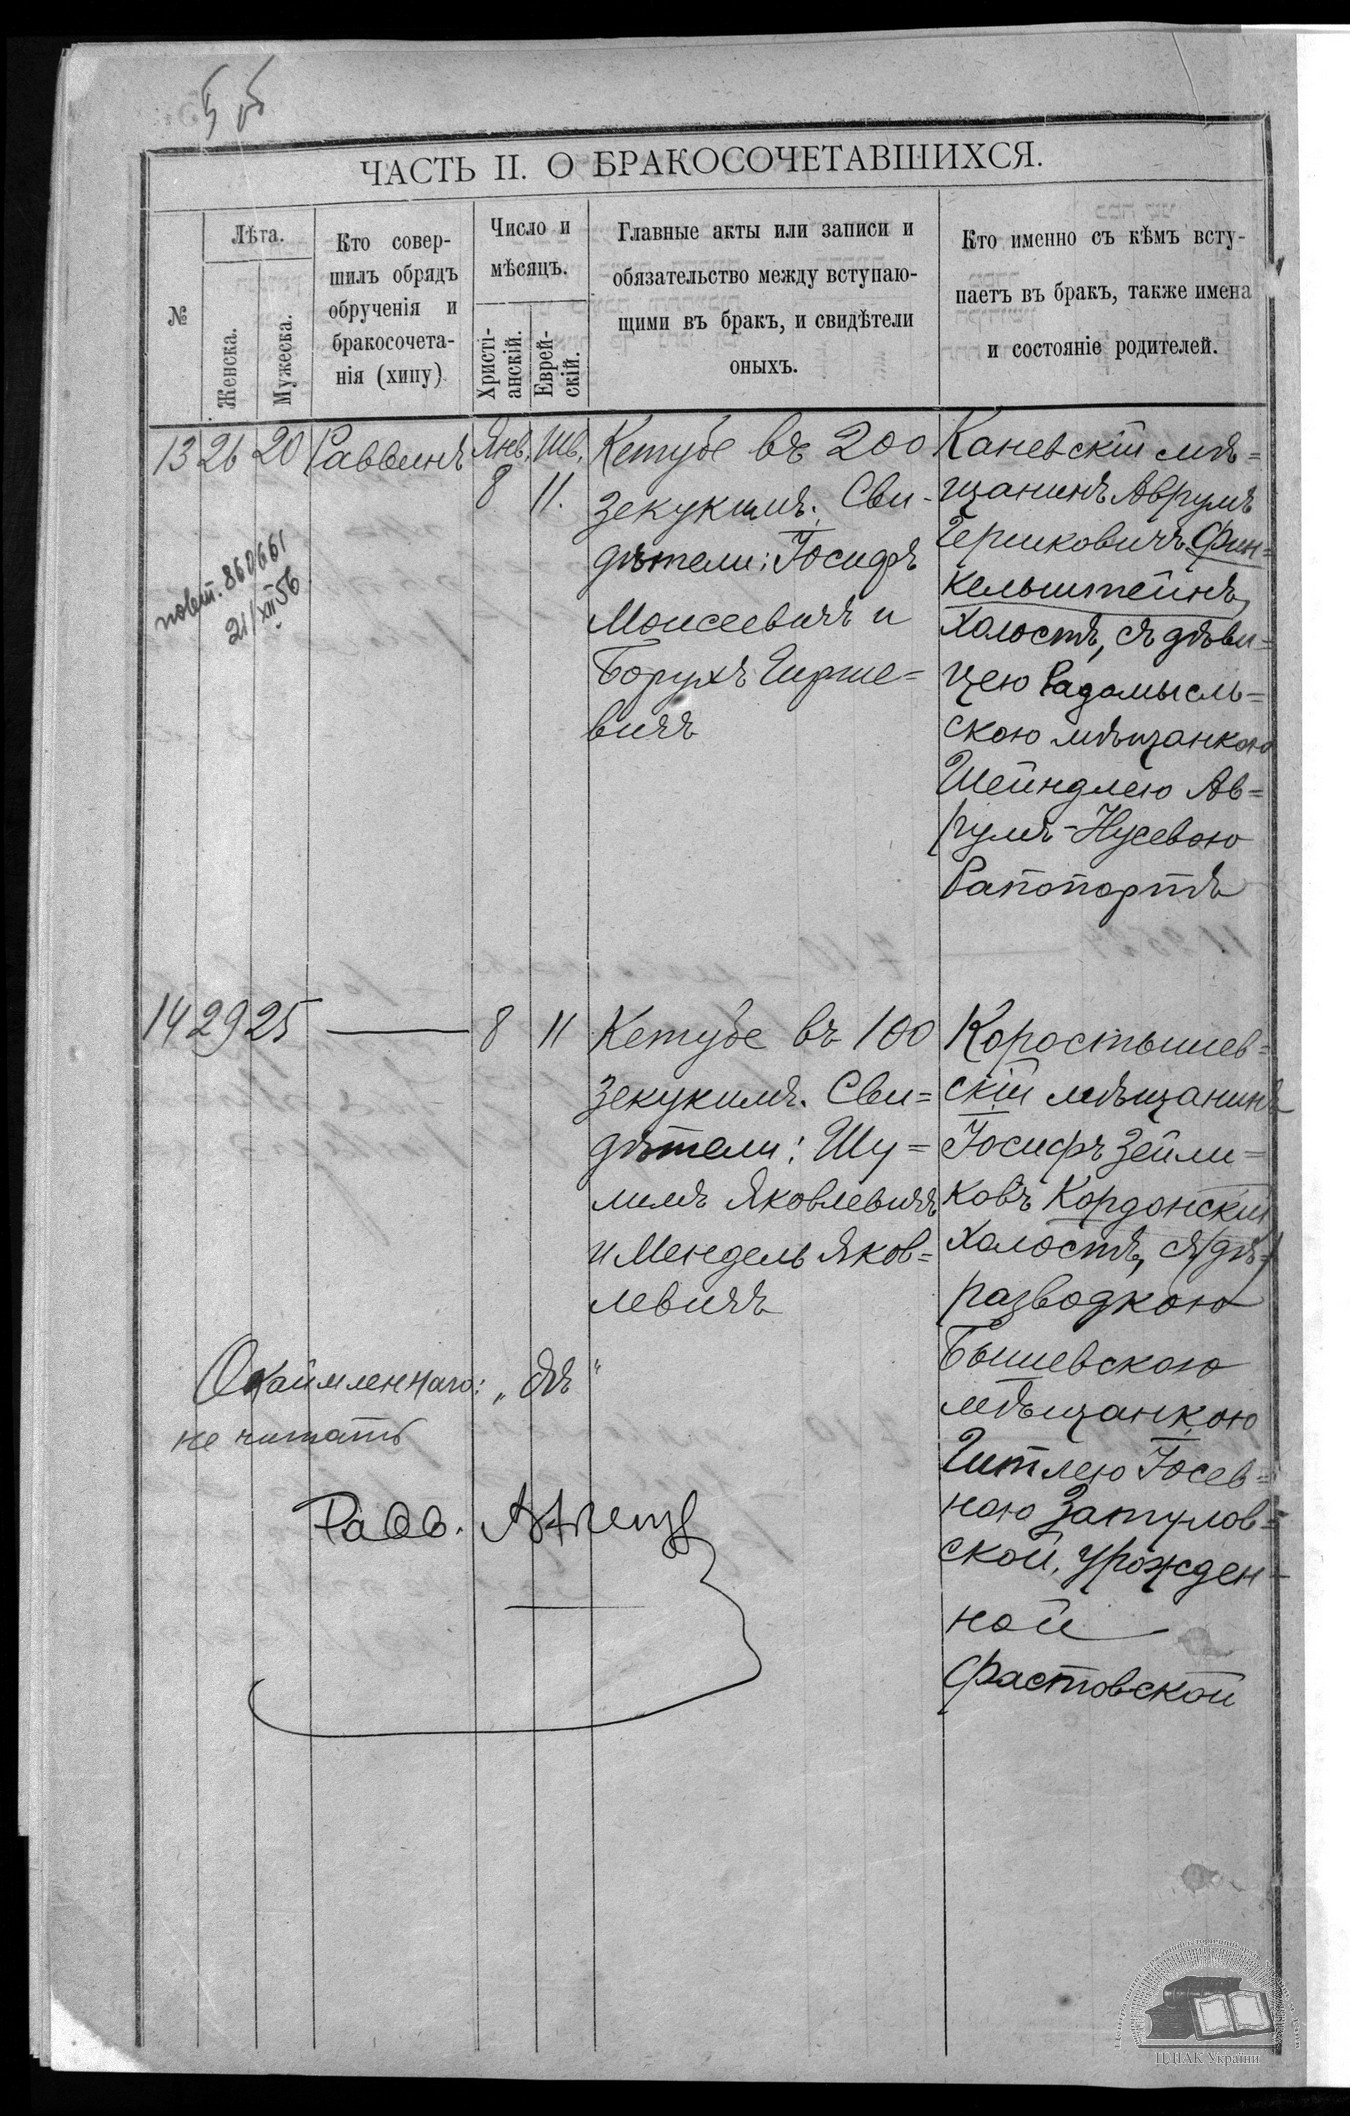 ЧАСТЬ II. О БРАКОСОЧЕТАВШИХСЯ.
№
Лѣта.
Женска.
Мужеска.
Кто совер-
шилъ обрядъ
обрученія и
бракосочета-
нія (хипу)
Число и
мѣсяцъ.
Христі-
анскій.
Еврей-
скій.
Главные акты или записи и
обязательство между вступаю-
щими въ бракъ, и свидѣтели
оныхъ.
Кто именно съ кѣмъ всту-
паетъ въ бракъ, также имена
и состояніе родителей.
13 26 20 Раввинъ Янв. Шв.
8 11.
Кетубе въ 200
зекукимъ. Сви-
дѣтели: Іосифъ
Моисеевичъ и
Борухъ Гирше=
вичъ
Каневскій мѣ=
щанинъ Аврумъ
Гершковичъ Фин=
кельштейнъ,
холостъ, съ дѣви=
цею Радомысль=
скою мѣщанкою
Шейндлею Ав=
румъ-Нусевою
Рапопортъ
повт. 860661
21/XII 56
14 29 25 — 8 11
Кетубе въ 100
зекукимъ. Сви=
дѣтели: Шу=
лимъ Яковлевичъ
и Мендель Яков=
левичъ
Коростышев=
скій мѣщанинъ
Іосифъ Зейли=
ковъ Кордонскій
холостъ, съ дѣ=
разводкою
Бышевскою
мѣщанкою
Гитлею Іосев=
ною Затулов=
ской, урожден=
ной
Фастовской
Окаймленнаго: „дѣ“
не читать
Равв.
ЦДІАК України